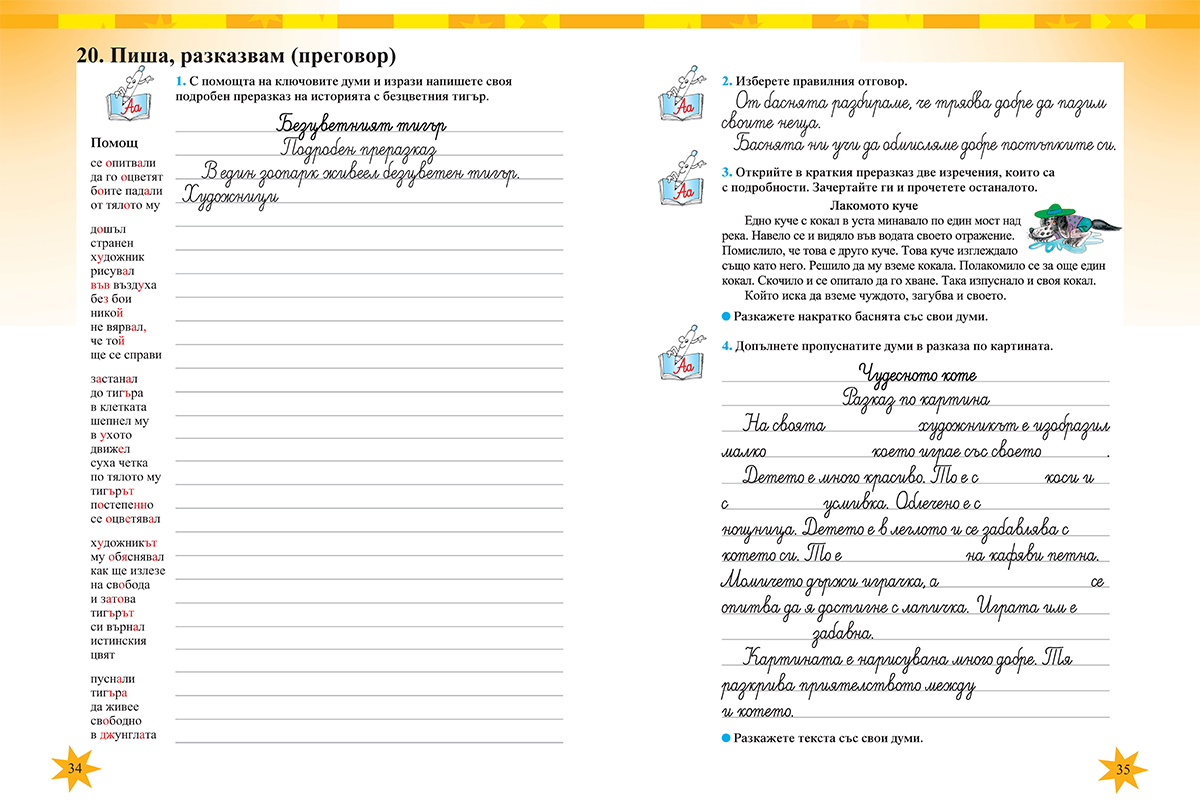 20. Пиша, разказвам (преговор)
1. С помощта на ключовите думи и изрази напишете своя
подробен преразказ на историята с безцветния тигър.
Аа
Безцветният тигър
Подробен преразказ
В един зоопарк живеел безцветен тигър.
Художници
Помощ
се опитвали
да го оцветят
боите падали
от тялото му
дошъл
странен
художник
рисувал
във въздуха
без бои
никой
не вярвал,
че той
ще се справи
застанал
до тигъра
в клетката
шепнел му
в ухото
движел
суха четка
по тялото му
тигърът
постепенно
се оцветявал
художникът
му обяснявал
как ще излезе
на свобода
и затова
тигърът
си върнал
истинския
цвят
пуснали
тигъра
да живее
свободно
в джунглата
34
Аа
2. Изберете правилния отговор.
От баснята разбираме, че трябва добре да пазим
своите неща.
Баснята ни учи да обмисляме добре постъпките си.
Аа
3. Открийте в краткия преразказ две изречения, които са
с подробности. Зачертайте ги и прочетете останалото.
Лакомото куче
Едно куче с кокал в уста минавало по един мост над
река. Навело се и видяло във водата своето отражение.
Помислило, че това е друго куче. Това куче изглеждало
също като него. Решило да му вземе кокала. Полакомило се за още един
кокал. Скочило и се опитало да го хване. Така изпуснало и своя кокал.
Който иска да вземе чуждото, загубва и своето.
Разкажете накратко баснята със свои думи.
Аа
4. Допълнете пропуснатите думи в разказа по картината.
Чудесното коте
Разказ по картина
На своята художникът е изобразил
малко което играе със своето .
Детето е много красиво. То е с коси и
с усмивка. Облечено е с
нощница. Детето е в леглото и се забавлява с
котето си. То е на кафяви петна.
Момичето държи играчка, а се
опитва да я достигне с лапичка. Играта им е
забавна.
Картината е нарисувана много добре. Тя
разкрива приятелството между
и котето.
Разкажете текста със свои думи.
35